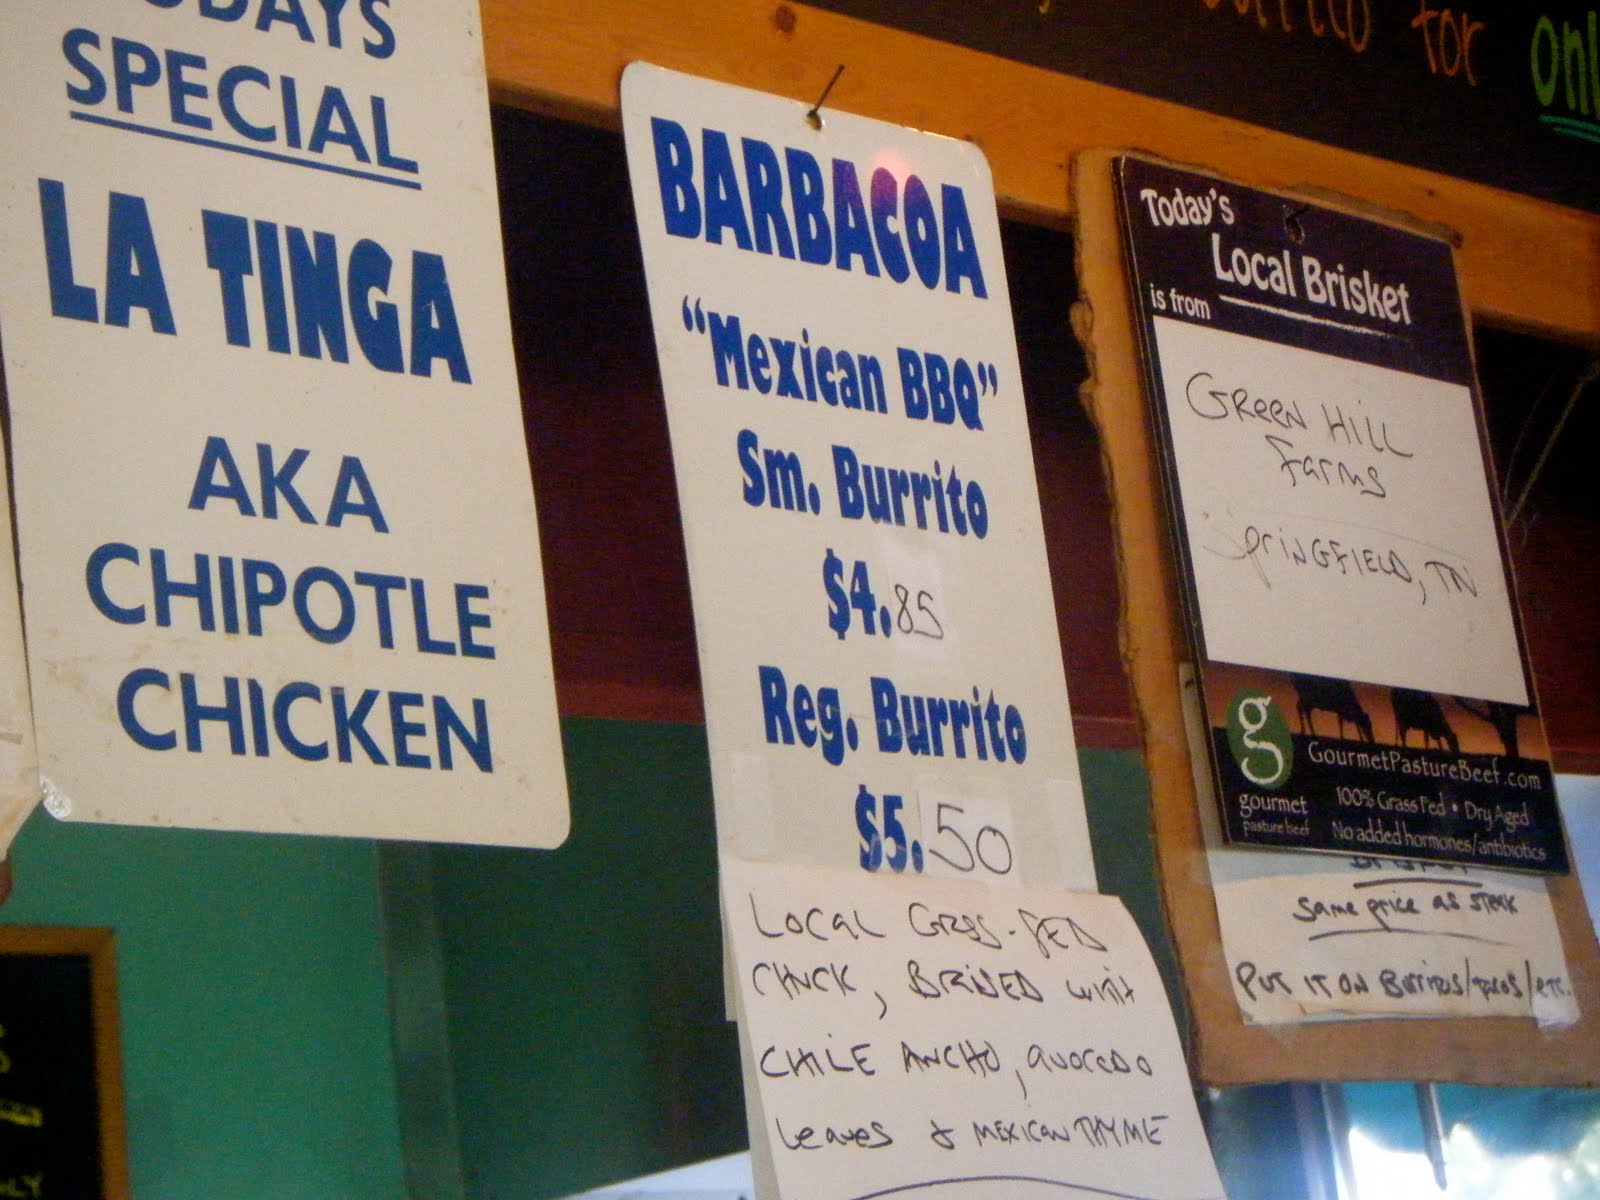 SPECIAL
LA TINGA
AKA
CHIPOTLE
CHICKEN
BARBACOA
"Mexican BBQ"
Sm. Burrito
$4.85
Reg. Burrito
$5.50
LOCAL GRASS-FED
CHUCK, BRAISED WITH
CHILE ANCHO, avocado
leaves & MEXICAN THYME
Today's
Local Brisket
is from
GREEN HILL
Farms
SPRINGFIELD, TN
g
GourmetPastureBeef.com
gourmet
pasture beef
100% Grass Fed • Dry Aged
No added hormones/antibiotics
same price as steak
PUT IT ON BURRITOS/TACOS/ETC.
for